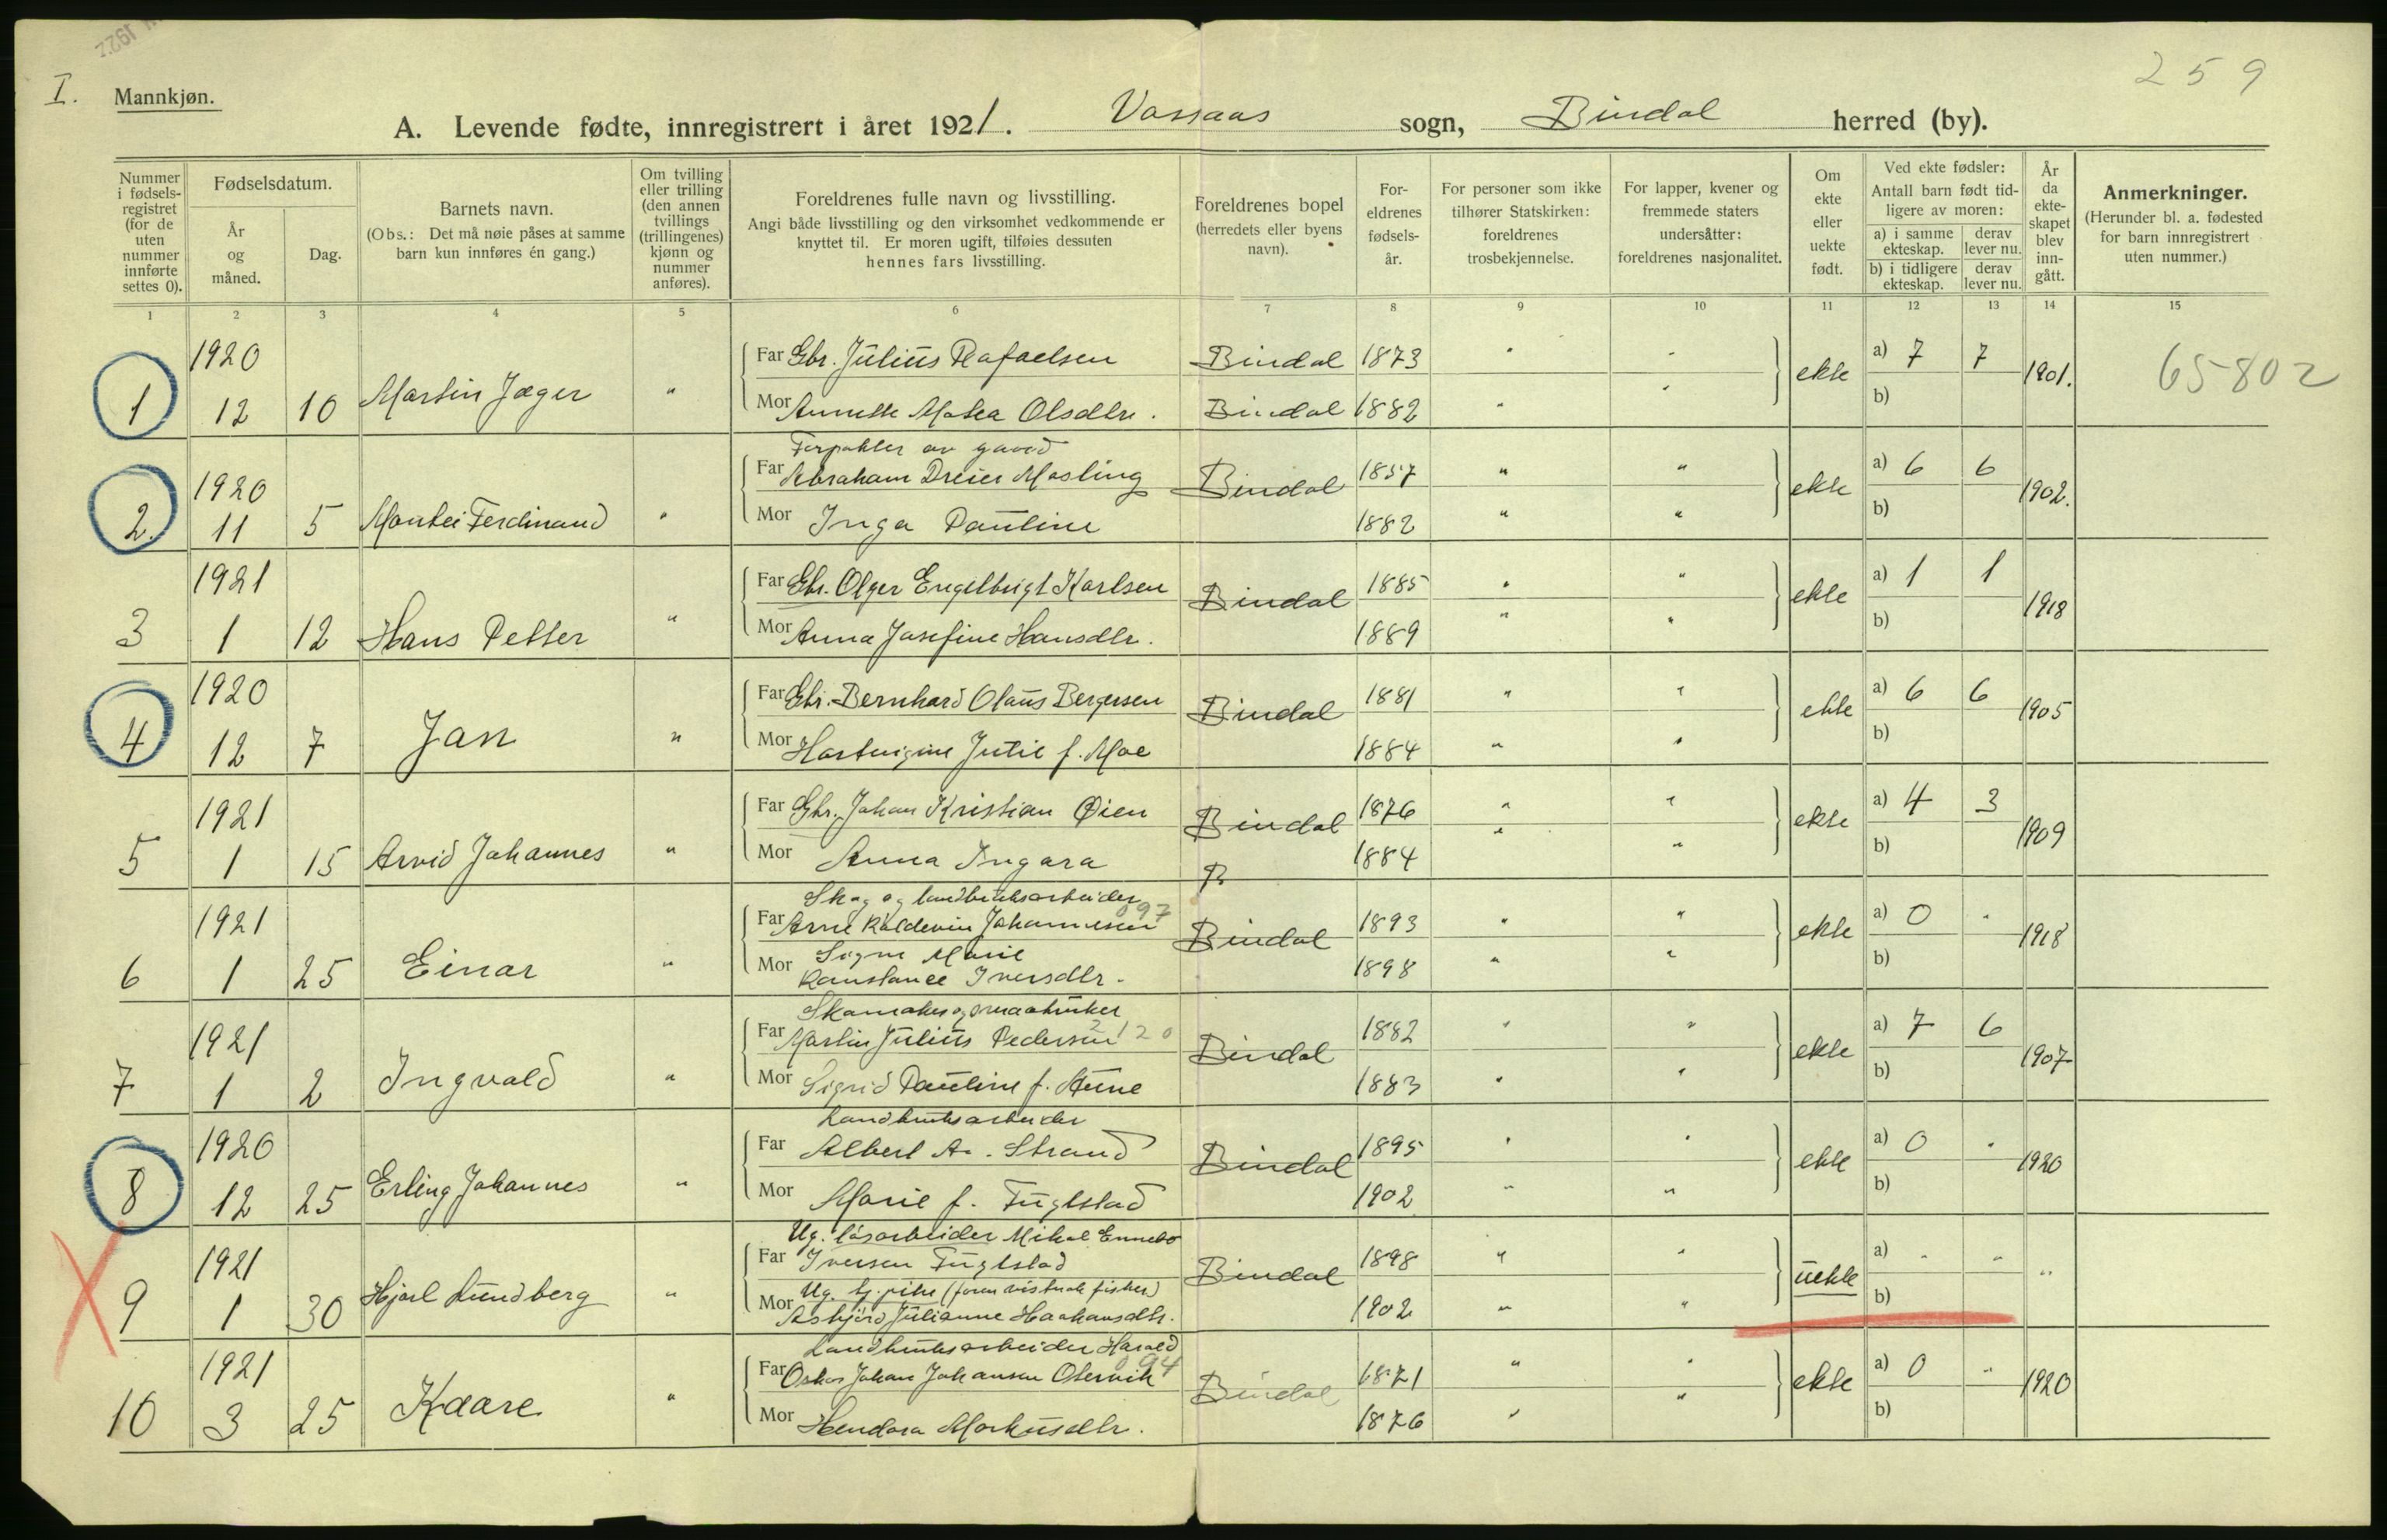 1922
I. Mannkjøn. 259
A. Levende fødte, innregistrert i året 1921. Vassaas sogn, Bindal herred (by).
Nummer i fødsels-registret (for de uten nummer innførte settes 0).
Fødselsdatum.
År og måned.
Dag.
Barnets navn.
(Obs.: Det må nøie påses at samme barn kun innføres én gang.)
Om tvilling eller trilling (den annen tvillings (trillingenes) kjønn og nummer anføres).
Foreldrenes fulle navn og livsstilling.
Angi både livsstilling og den virksomhet vedkommende er knyttet til. Er moren ugift, tilføies dessuten hennes fars livsstilling.
Foreldrenes bopel (herredets eller byens navn).
For-eldrenes fødsels-år.
For personer som ikke tilhører Statskirken: foreldrenes trosbekjennelse.
For lapper, kvener og fremmede staters undersåtter: foreldrenes nasjonalitet.
Om ekte eller uekte født.
Ved ekte fødsler: Antall barn født tid-ligere av moren:
a) i samme ekteskap. derav lever nu.
b) i tidligere ekteskap. derav lever nu.
År da ekte-skapet blev inn-gått.
Anmerkninger.
(Herunder bl. a. fødested for barn innregistrert uten nummer.)
1 2 3 4 5 6 7 8 9 10 11 12 13 14 15
1920 Far Gbr. Julius Rafaelsen Bindal 1873 " " a) 7 7
1 12 10 Martin Jæger " ekte 1901. 65802
Mor Annette Matea Olsdtr. Bindal 1882 " " b)
Forpakter av gaard
1920 Far Abraham Dreier Masling Bindal 1857 " " a) 6 6
2. 11 5 Montei Ferdinand " ekte 1902.
Mor Inga Pauline 1882 " " b)
1921 Far Gbr. Olger Engelbrigt Karlsen Bindal 1885 " " a) 1 1
3 1 12 Hans Petter " ekte 1918
Mor Anna Josefine Hansdtr. 1889 " " b)
1920 Far Gbr. Bernhard Olaus Bergersen Bindal 1881 " " a) 6 6
4 12 7 Jan " ekte 1905
Mor Hartvigine Jutie f. Moe 1884 " " b)
1921 Far Gbr. Johan Kristian Øien Bindal 1876 " " a) 4 3
5 1 15 Arvid Johannes " ekte 1909
Mor Anna Ingara B 1884 " " b)
Skog og landbruksarbeider 097
1921 Far Arne Koldevin Johannesen Bindal 1893 " " a) 0 "
6 1 25 Einar " ekte 1918
Mor Signe Marie
Konstance Iversdtr. 1898 " " b)
Skomaker og smaabruker
1921 Far Martin Julius Pedersen 2120 Bindal 1882 " " a) 7 6
7 1 2 Ingvald " ekte 1907
Mor Sigrid Pauline f. Aune 1883 " " b)
Landbruksarbeider
1920 Far Albert A. Strand Bindal 1895 " " a) 0 "
8 12 25 Erling Johannes " ekte 1920
Mor Marie f. Fuglstad 1902 " " b)
Ug. løsarbeider Mikal Ennebo
1921 Far Iversen Fuglstad Bindal 1898 " " a) " "
9 1 30 Hjarl Lundberg " uekte "
Ug. tj.pike
Mor Asbjørd Julianne Haakansdtr. 1902 " " b)
Landbruksarbeider Harald
1921 Far Oskar Johan Johansen Otervik 094 Bindal 1871 " " a) 0 "
10 3 25 Kaare " ekte 1920
Mor Hendora Markusdtr. 1876 " " b)